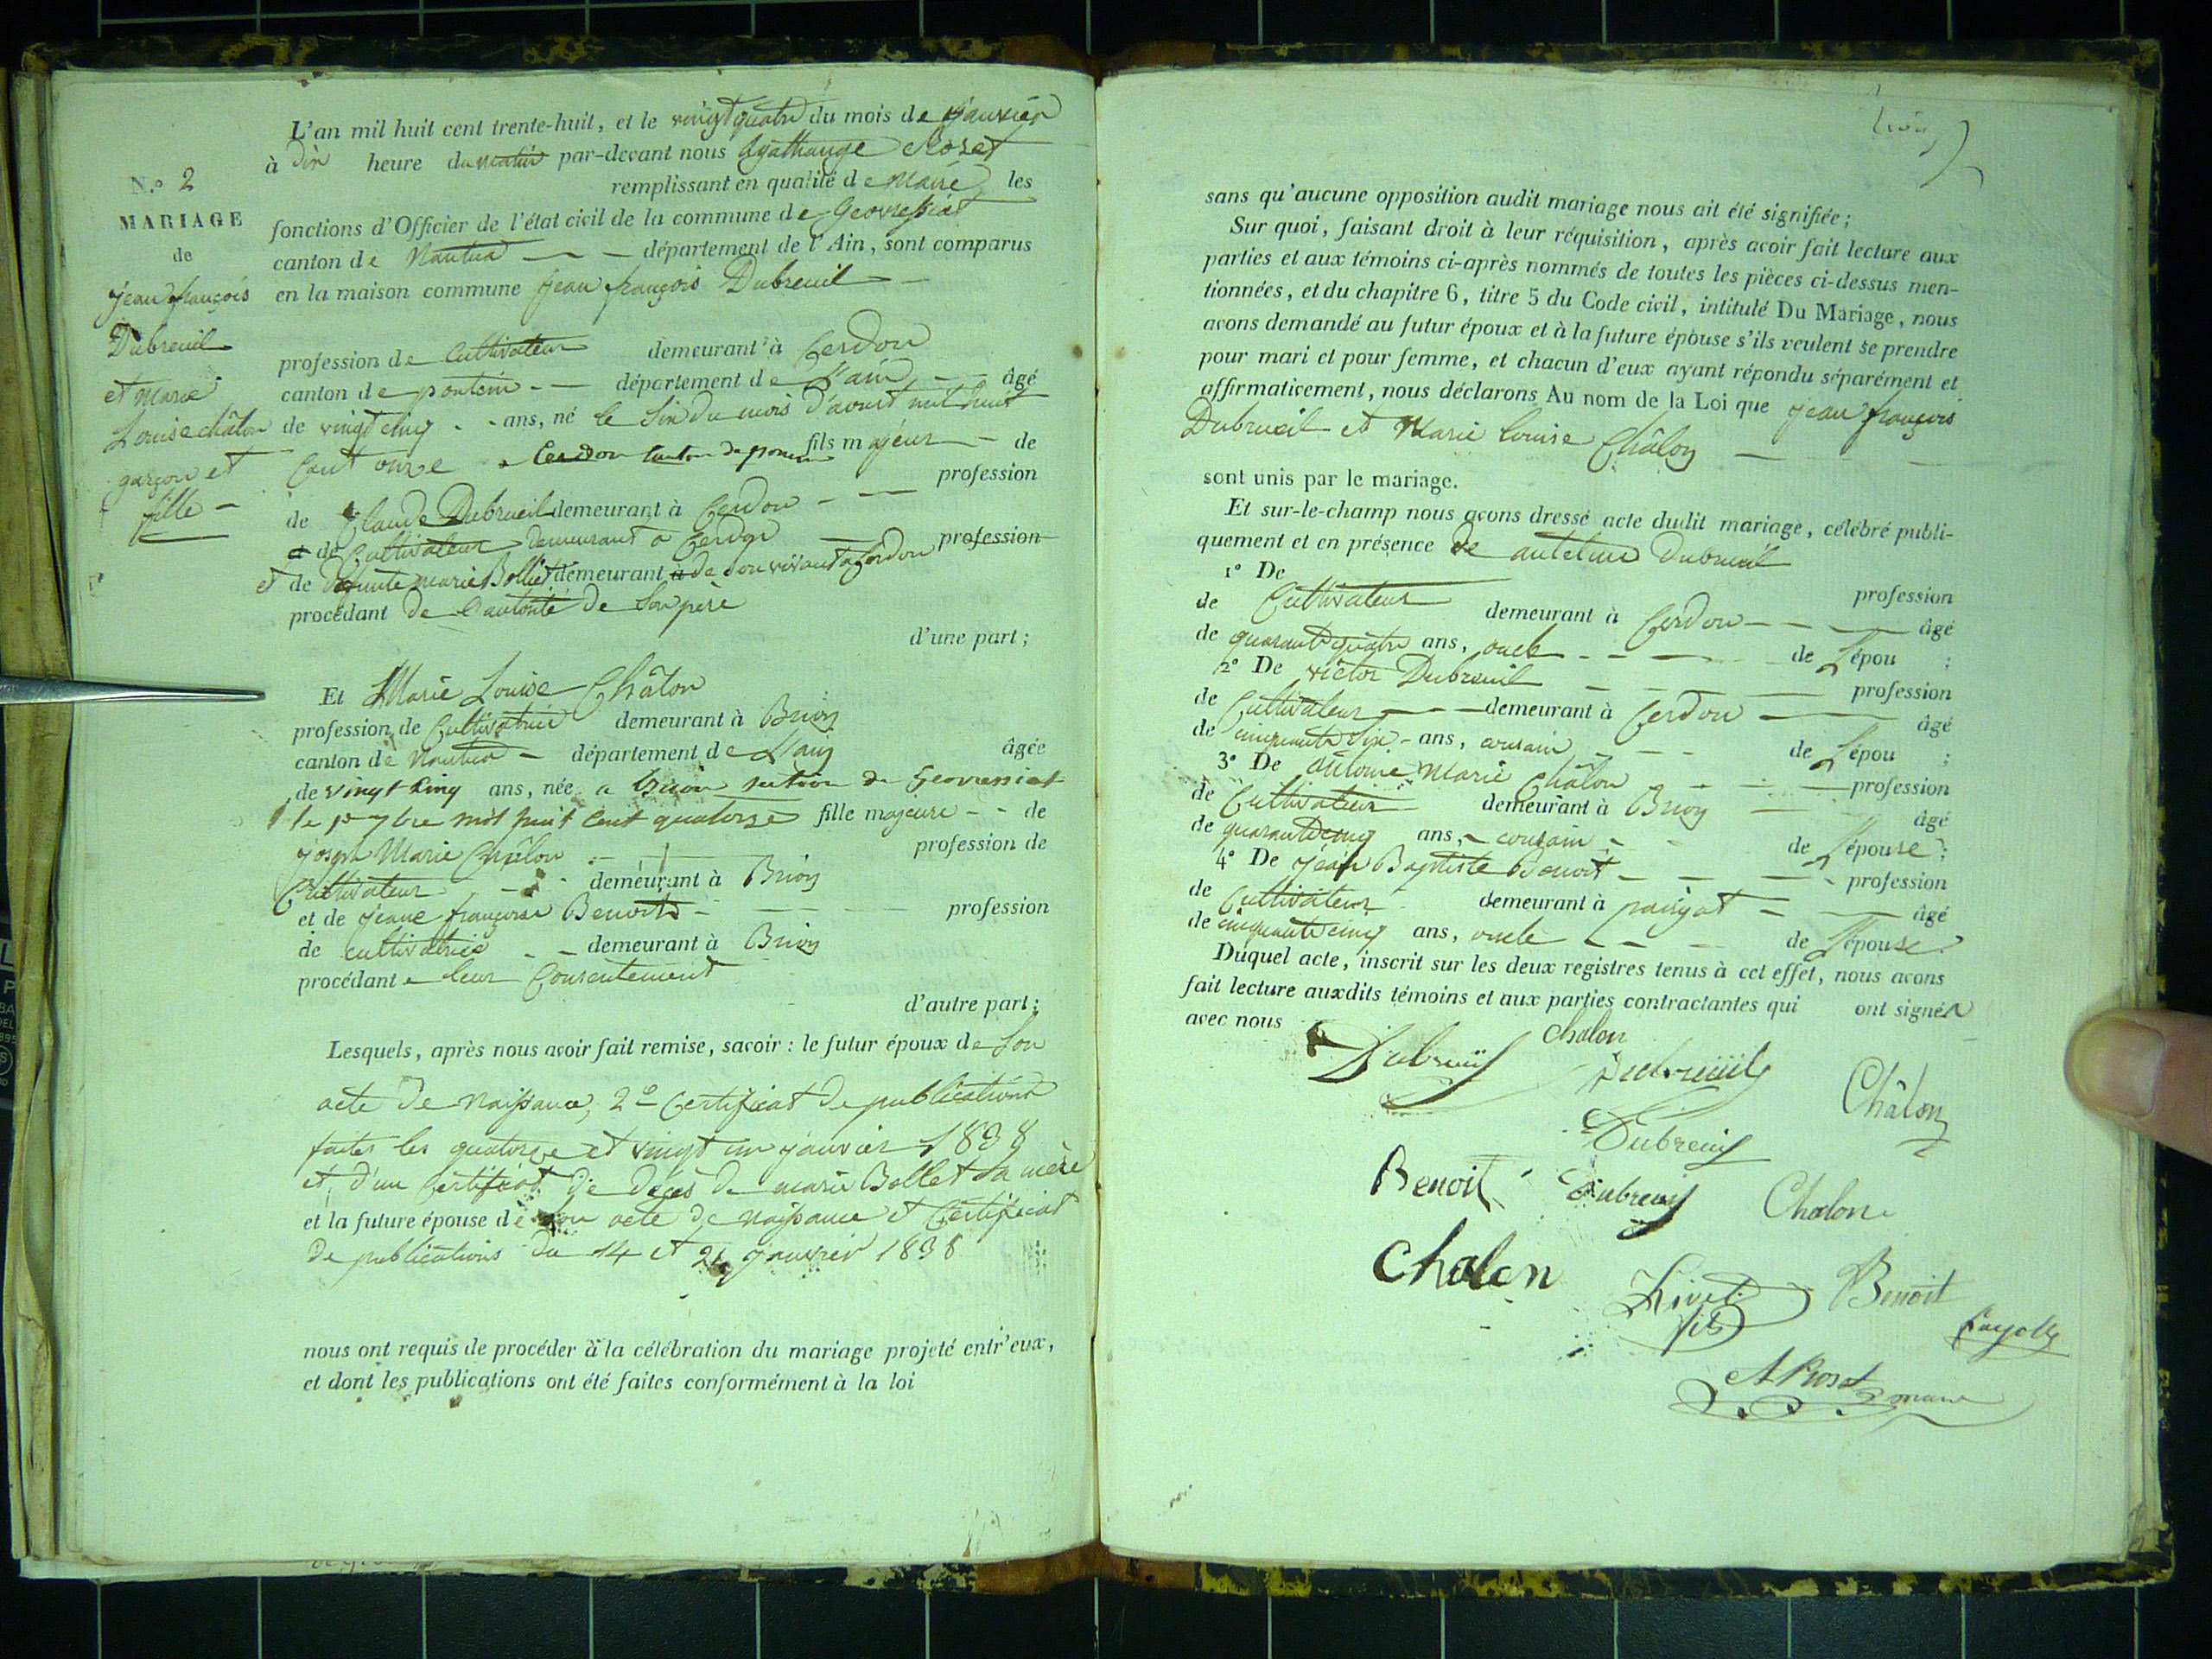 L'an mil huit cent trente-huit, et le vingt quatre du mois de janvier
à dix heure du matin par-devant nous Agathange Roset
remplissant en qualité de Maire, les
fonctions d'Officier de l'état civil de la commune de Geovressiat
canton de Nantua département de l'Ain, sont comparus
en la maison commune jean françois Dubreuil
profession de Cultivateur demeurant à Cerdon
canton de poncin département de l'ain âgé
de vingt cinq ans, né le dix du mois d'avout mil huit
Cent onze a Cerdon canton de poncin fils majeur de
profession
de Claude Dubreuil demeurant à Cerdon
et de Cultivateur demeurant a Cerdon profession
et de defunte marie Bolliet demeurant a de son vivant a Cerdon
procédant de l'autorité de son père
d'une part;
N.° 2
MARIAGE
de
jean françois
Dubreuil
et marie
Louise châlon
garçon et
fille
Et Marie Louise Châlon
profession de Cultivatrice demeurant à Brion
canton de Nantua département de l'ain âgée
de vingt cinq ans, née a brion section de Geovressiat
le 1er 7bre mil huit cent quatorse fille majeure de
joseph Marie Châlon profession de
Cultivateur demeurant à Brion
et de jeane françoise Benoit profession
de cultivatrice demeurant à Brion
procédant leur Consentement
d'autre part;
Lesquels, après nous avoir fait remise, savoir: le futur époux de son
acte de naissance, 2° Certificat de publications
faites les quatorze et vingt un janvier 1838
et d'un Certificat de décès de marie Bollet sa mère
et la future épouse de son acte de naissance et Certificat
de publications du 14 et 21 janvier 1838
nous ont requis de procéder à la célébration du mariage projeté entr'eux,
et dont les publications ont été faites conformément à la loi
sans qu'aucune opposition audit mariage nous ait été signifiée;
Sur quoi, faisant droit à leur réquisition, après avoir fait lecture aux
parties et aux témoins ci-après nommés de toutes les pièces ci-dessus men-
tionnées, et du chapitre 6, titre 5 du Code civil, intitulé Du Mariage, nous
avons demandé au futur époux et à la future épouse s'ils veulent se prendre
pour mari et pour femme, et chacun d'eux ayant répondu séparément et
affirmativement, nous déclarons Au nom de la Loi que jean françois
Dubreuil et Marie louise Châlon
sont unis par le mariage.
Et sur-le-champ nous avons dressé acte dudit mariage, célébré publi-
quement et en présence de antelme Dubreuil
1° De profession
de Cultivateur demeurant à Cerdon âgé
de quarante quatre ans, oncle de L'épou ;
2° De victor Dubreuil profession
de Cultivateur demeurant à Cerdon âgé
de cinquante six ans, cousain de L'épou ;
3° De antoine Marie Châlon profession
de Cultivateur demeurant à Brion âgé
de quarante cinq ans, cousain de L'épouse;
4° De jean Baptiste Benoit profession
de Cultivateur demeurant à âgé
de cinquante cinq ans, oncle de L'épouse.
Duquel acte, inscrit sur les deux registres tenus à cet effet, nous avons
fait lecture auxdits témoins et aux parties contractantes qui ont signé
avec nous
Chalon
Dubreuil Dubreuil Châlon
Dubreuil
Benoit Dubreuil Chalon
Chalon
fils Benoit
A Roset maire